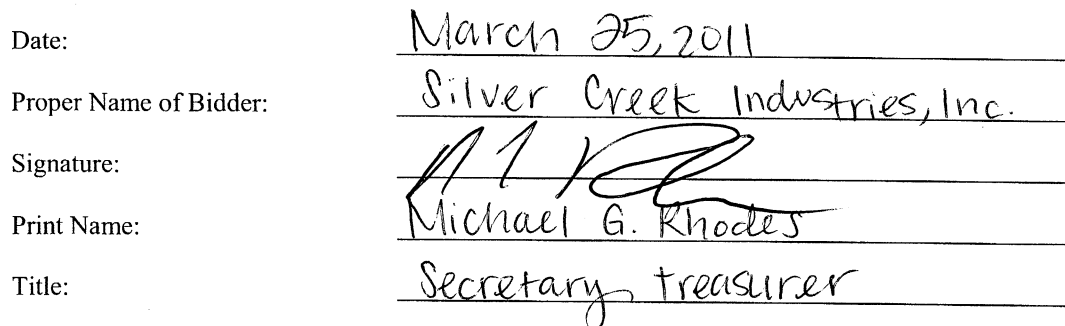 Date: March 25, 2011
Proper Name of Bidder: Silver Creek Industries, Inc.
Signature:
Print Name: Michael G. Rhodes
Title: Secretary, treasurer